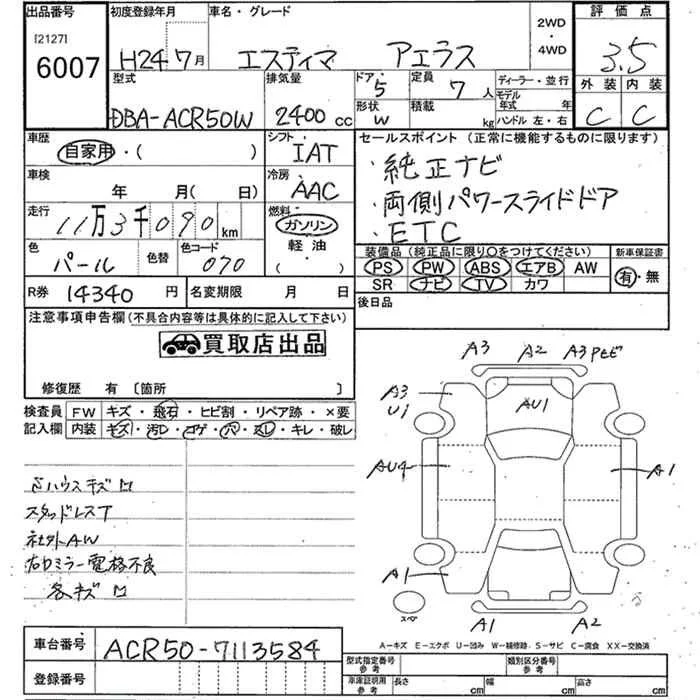 出品番号
[2127]
6007
初度登録年月
H24 7月
車名・グレード
エスティマ アエラス
2WD
・
4WD
評価点
3.5
外装 内装
C C
型式
DBA-ACR50W
排気量
2400 cc
ドア・
5
形状
W
定員
7 人
積載
kg
ディーラー・並行
モデル年式 年
ハンドル 左・右
車歴
自家用・( )
シフト
IAT
車検
年 月( 日)
冷房
AAC
走行
11万3千090 km
燃料
ガソリン
軽油
( )
色
パール
色替
色コード
070
R券 14340 円
名変期限 月 日
セールスポイント (正常に機能するものに限ります)
・純正ナビ
・両側パワースライドドア
・ETC
装備品 (純正品に限り○をつけてください)
PS PW ABS エアB AW
SR ナビ TV カワ
新車保証書
有・無
後日品
注意事項申告欄 (不具合内容等は具体的に記入して下さい)
買取店出品
修復歴 有 〔箇所 〕
検査員記入欄
FW キズ・飛石・ヒビ割・リペア跡・×要
内装 キズ・汚レ・コゲ・穴・ヌレ・キレ・破レ
スタッドレスT
社外AW
右Dミラー電格不良
各キズ
A3 A2 A3 PセビA3
U1
AU1
AU4
A1
A1
A1 A2
スペ
A-キズ E-エクボ U-凹み W-補修跡 S-サビ C-腐食 XX-交換済
車台番号 ACR50-7113584
登録番号
型式指定番号 参考
類別区分番号 参考
車庫証明用 参考 長さ cm 幅 cm 高さ cm